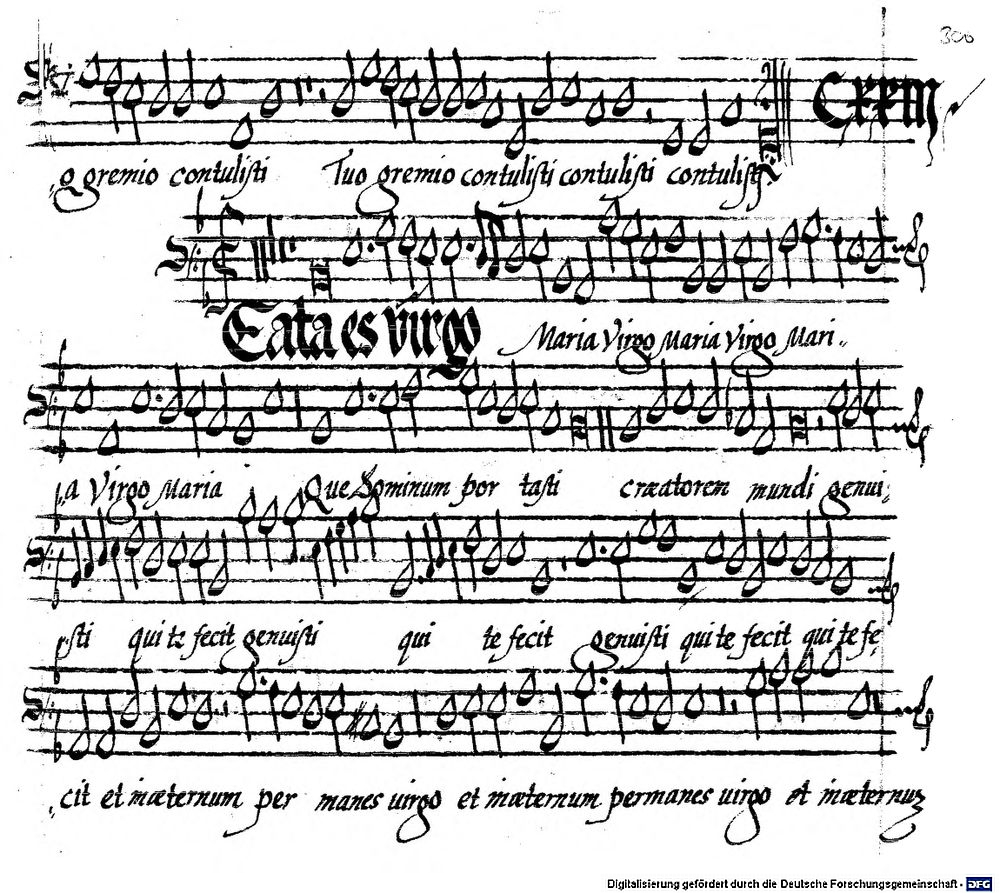 300
CXXIII
o gremio contulisti Tuo gremio contulisti contulisti contulisti
Eata es virgo Maria Virgo Maria Virgo Mari
a Virgo Maria Que Dominum por tasti creatorem mundi genui
sti qui te fecit genuisti qui te fecit genuisti qui te fecit qui te fe
cit et inæternum per manes virgo et inæternum permanes virgo et inæternum
Digitalisierung gefördert durch die Deutsche Forschungsgemeinschaft - DFG